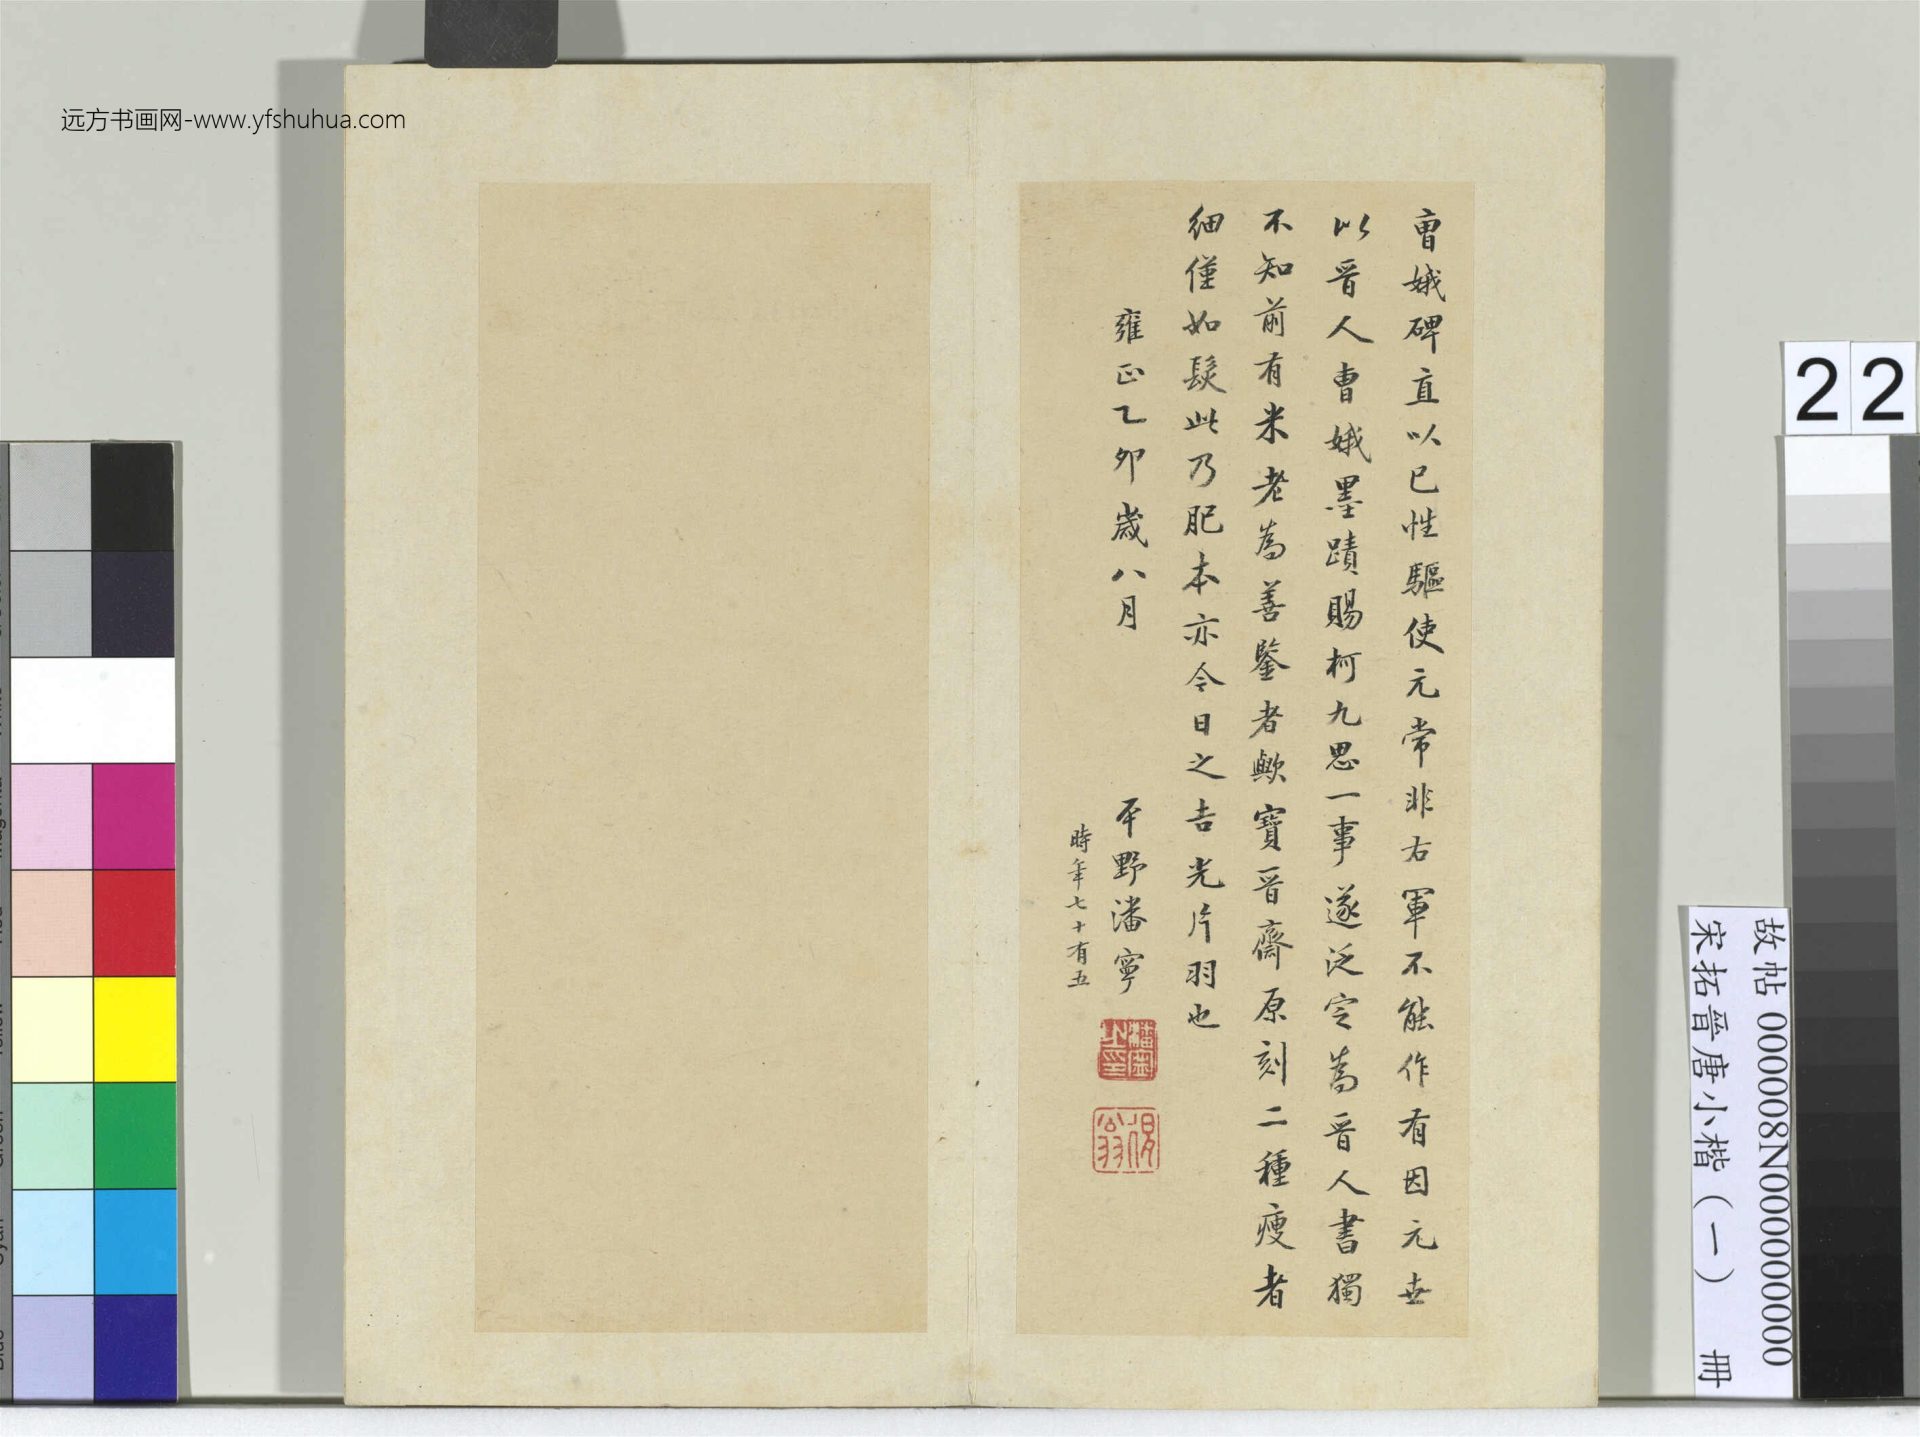 远方书画网-www.yfshuhua.com
曹娥碑直以已性驅使元常非右軍不能作有因元世
以晋人曹娥墨蹟賜柯九思一事遂泛定為晋人書獨
不知前有米老為善鑒者歟寶晋齋原刻二種瘦者
細僅如髮此乃肥本亦今日之吉光片羽也
雍正乙卯歲八月
平野潘寧
時年七十有五
22
故帖 000008N000000000
宋拓晋唐小楷（一） 冊